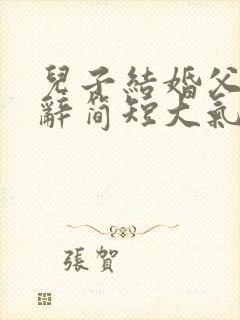 兒子結婚父
辭简短大氣
張賀